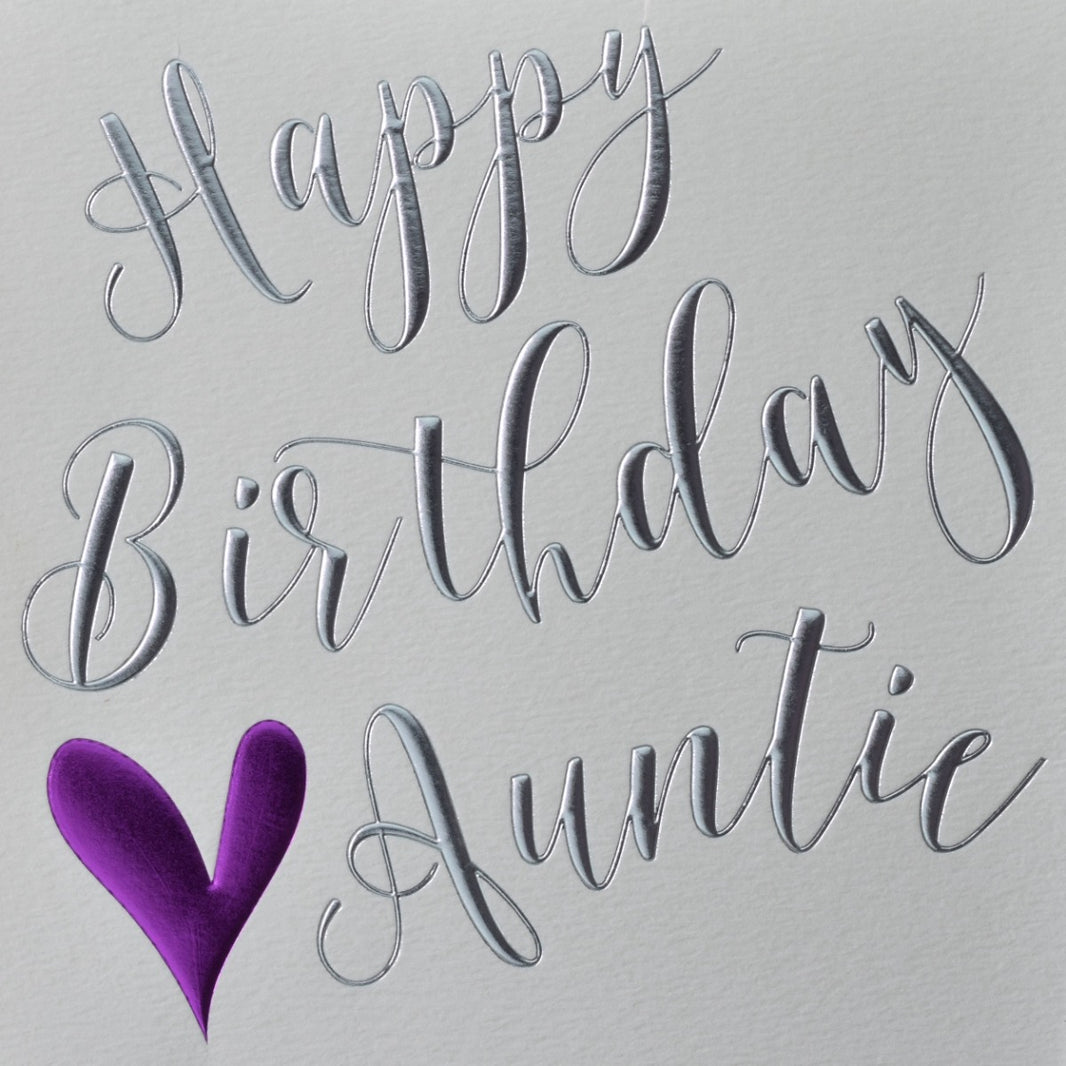 Happy
Birthday
Auntie